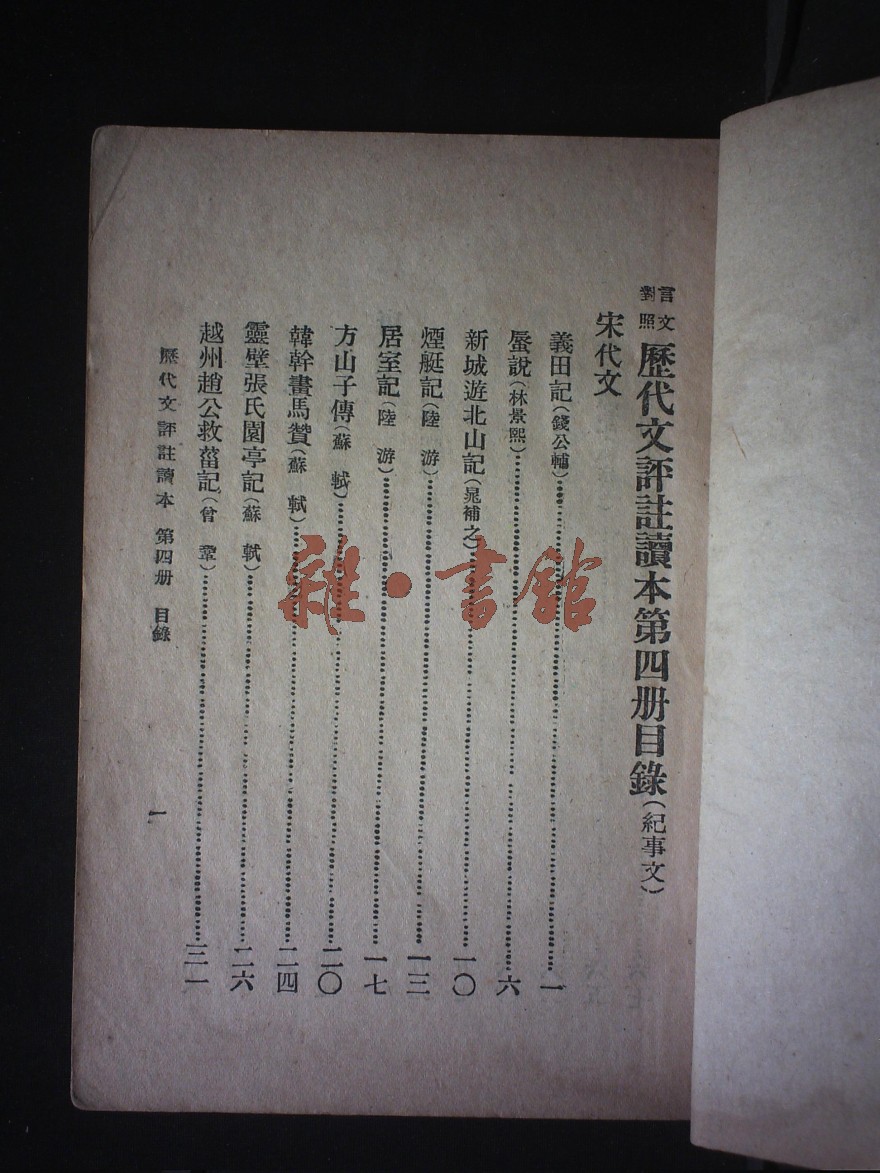 言文對照 歷代文評註讀本第四册目錄(紀事文)
宋代文
義田記(錢公輔)……一
蜃說(林景熙)……六
新城遊北山記(晁補之)……一〇
煙艇記(陸 游)……一三
居室記(陸 游)……一七
方山子傳(蘇 軾)……二〇
韓幹畫馬贊(蘇 軾)……二四
靈壁張氏園亭記(蘇 軾)……二六
越州趙公救菑記(曾 鞏)……三一
歷代文評註讀本 第四册 目錄
一
雜·書館